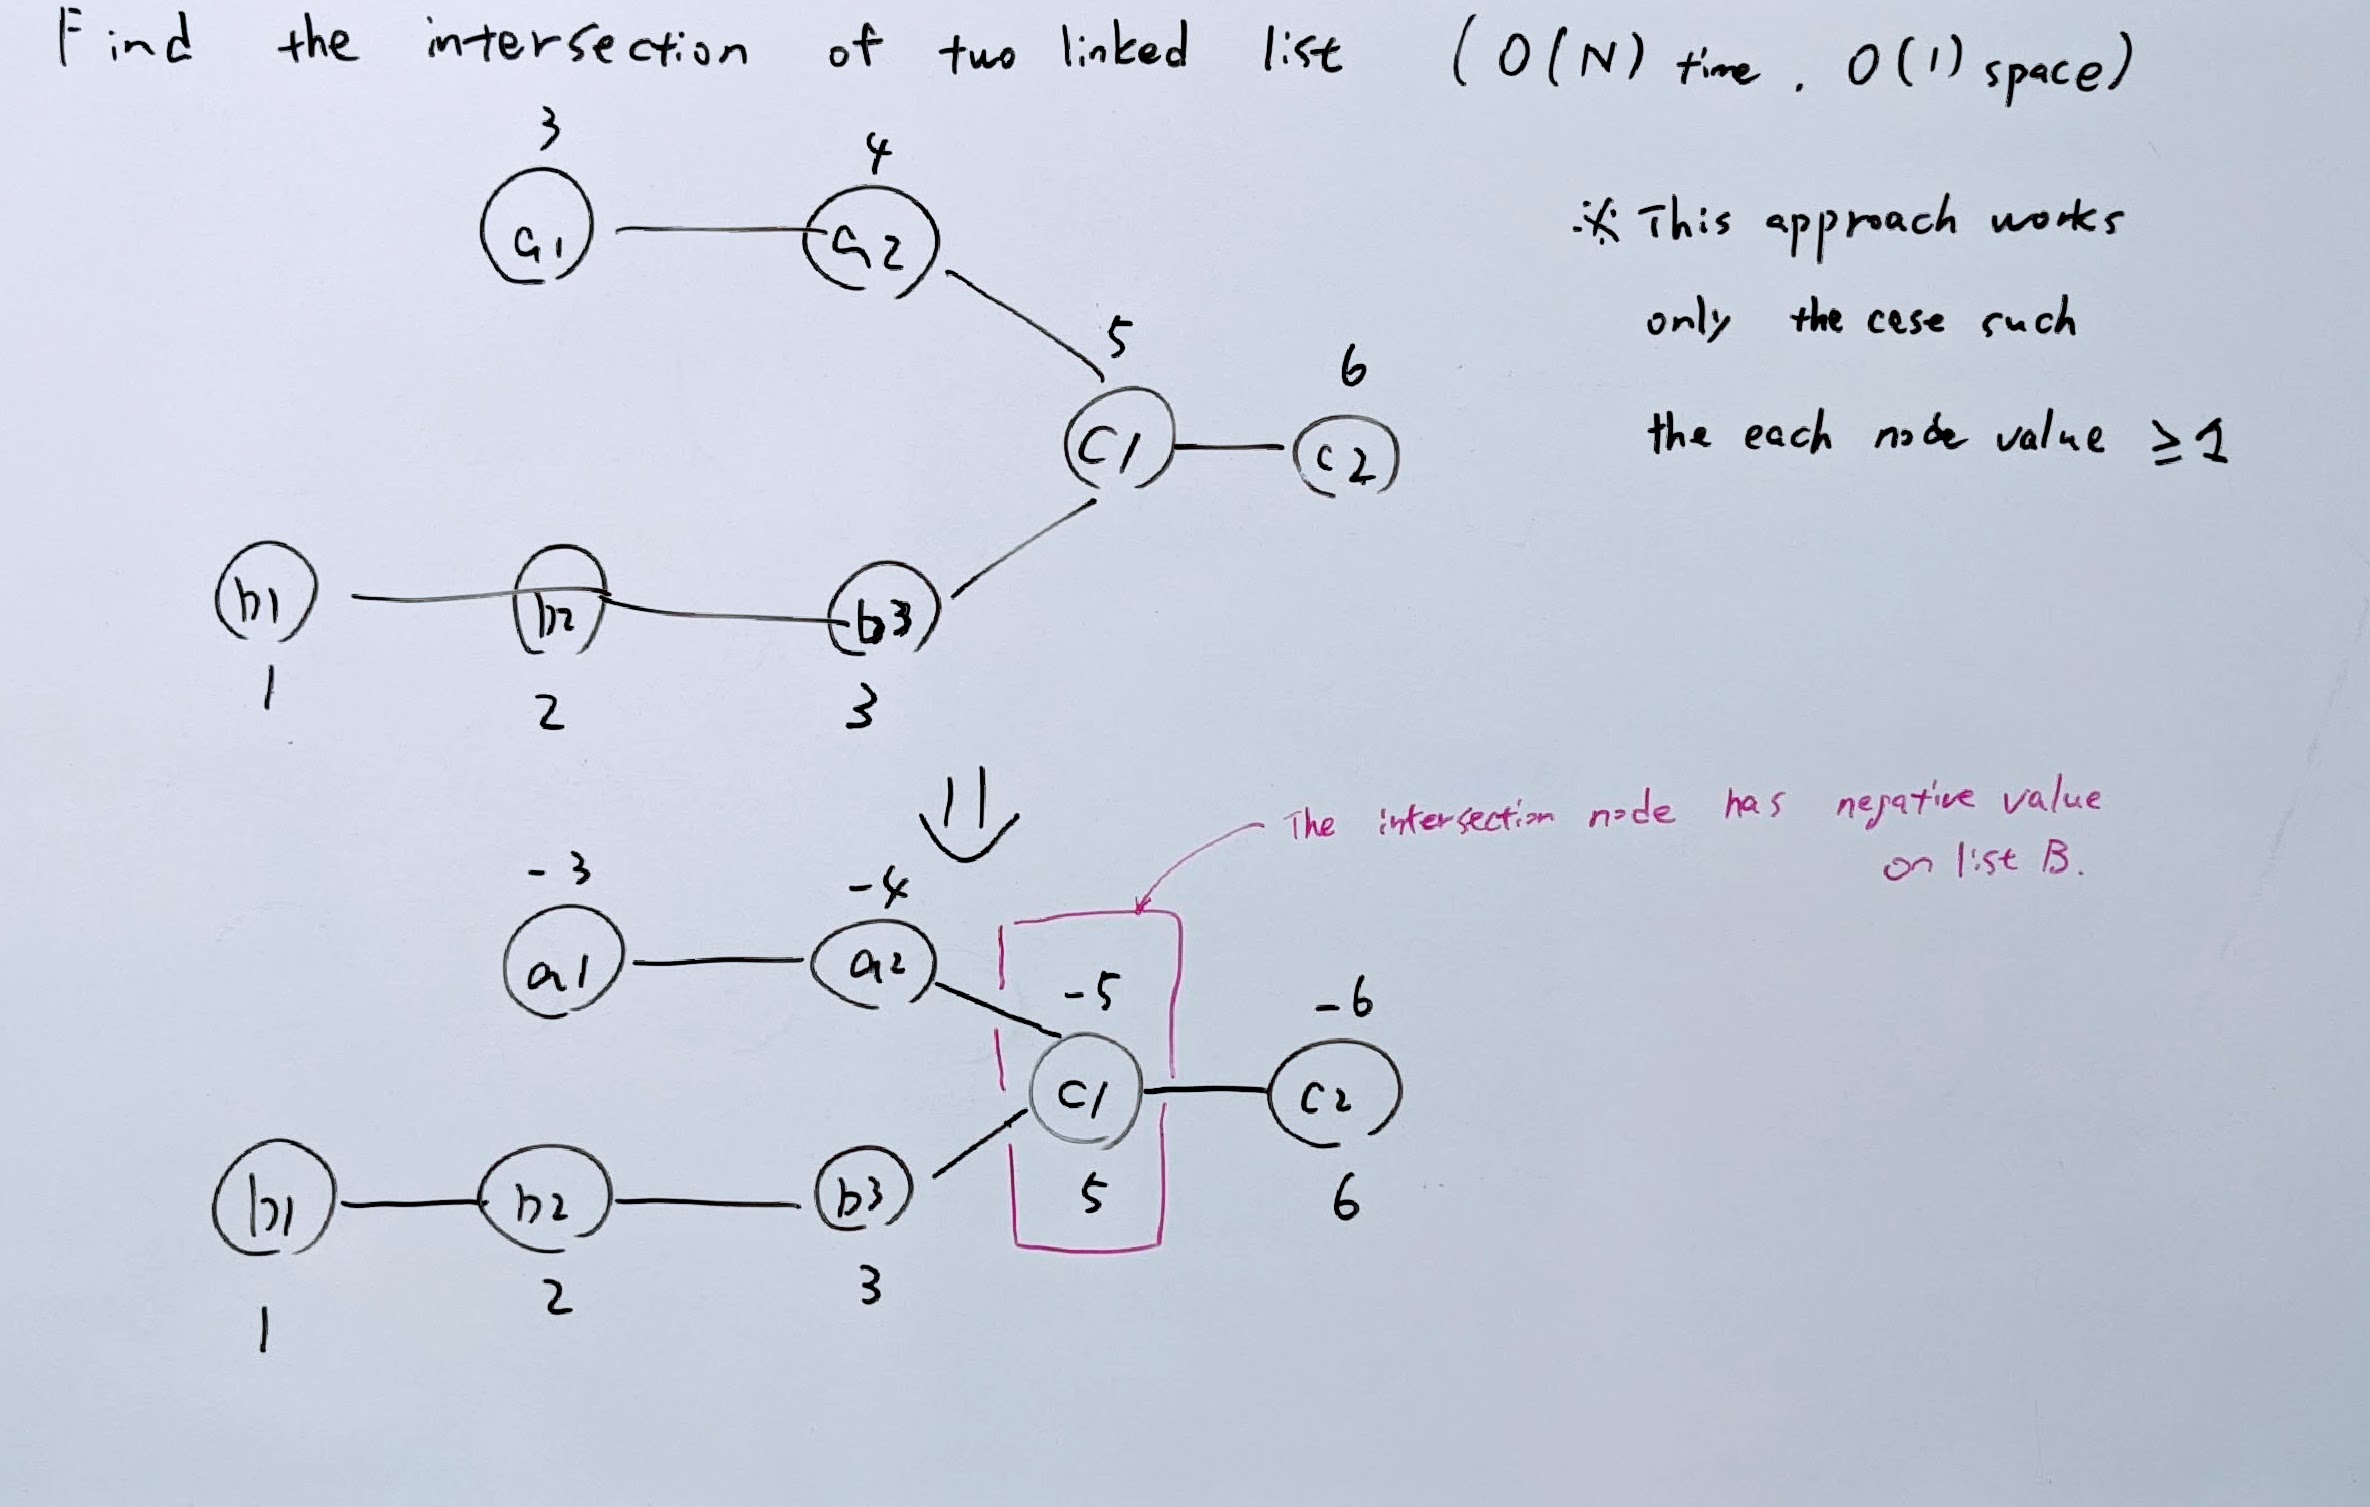 Find the intersection of two linked list (O(N) time, O(1) space)
3
4
a1
a2
※ This approach works
only the case such
the each node value ≥ 1
5
6
C1
c2
b1
b2
b3
1
2
3
The intersection node has negative value
on list B.
-3
-4
a1
a2
-5
-6
C1
C2
b1
b2
b3
5
6
1
2
3